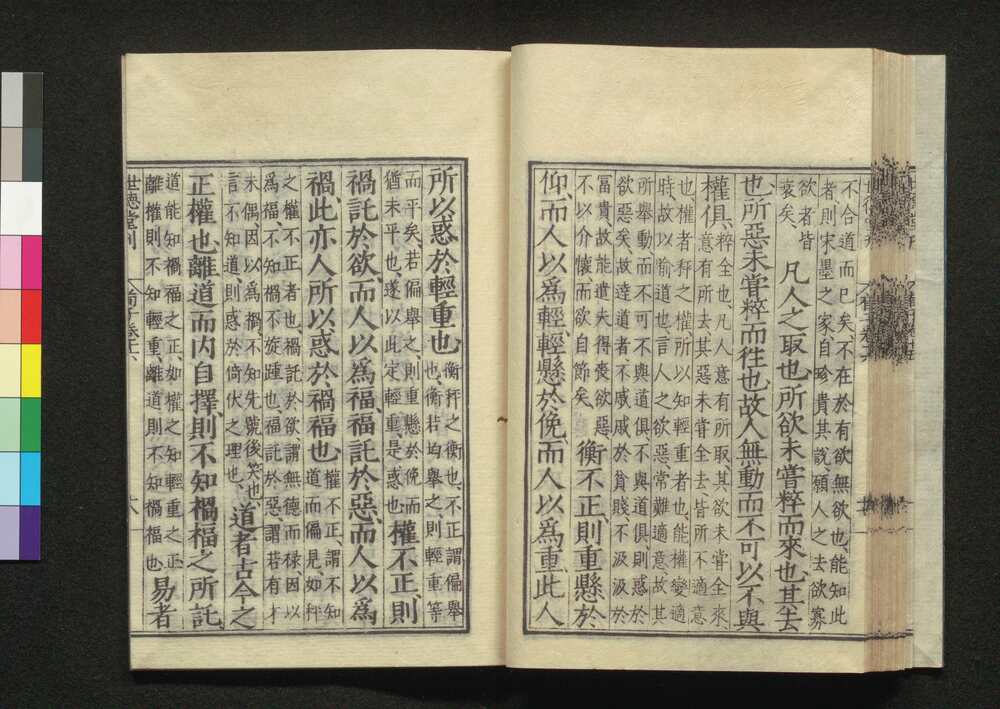 不合道而已矣、不在於有欲無欲也、能知此
者則宋墨之家、自珍貴其說、願人之去欲寡
欲者皆
衰矣
凡人之取也、所欲未嘗粹而來也、其去
也、所惡未嘗粹而往也、故人無動而不可以不與
權俱、
粹全也、凡人意有所取其欲未嘗全來、
意有所去其惡未嘗全去、皆所不適意
也、權者秤之權所以知輕重者也、能權變適
時、故以喻道也、言人之欲惡常難適意、故其
所舉動而不可不與道俱、不與道俱、則惑於
欲惡矣、故達道者不戚戚於貧賤不汲汲於
冨貴、故能遣夫得喪欲惡
不以介懷而欲自節矣、
衡不正、則重懸於
仰、而人以爲輕、輕懸於俛、而人以爲重、此人
所以惑於輕重也、
衡秤之衡也、不正謂偏舉
也、衡若均舉之、則輕重等
而平矣、若偏舉之、則重懸於俛而
猶未平也、遂以此定輕重、是惑也
權不正、則
禍託於欲、而人以爲福、福託於惡、而人以爲
禍、此亦人所以惑於禍福也、
權不正、謂不知
道而偏見、如秤
之權不正者也、禍託於欲、謂無德而禄、因以
爲福、不知禍不旋踵也、福託於惡、謂若有才
未偶、因以爲禍、不知先號後笑也、
言不知道、則惑於倚伏之理也、
道者古今之
正權也、離道而内自擇、則不知禍福之所託、
道能知禍福之正、如權之知輕重之正、
離權則不知輕重、離道則不知禍福也、
易者
世德堂刊